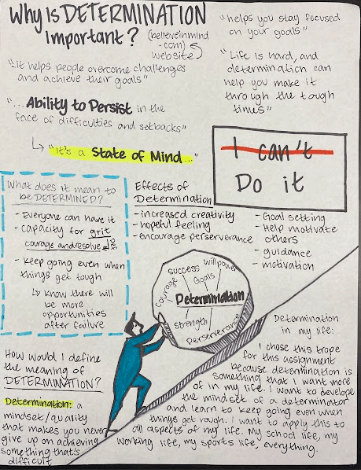 Why Is DETERMINATION
Important?
(believeinmind
.com)
website
"it helps people overcome challenges
and achieve their goals"
"helps you stay focused
on your goals"
"Life is hard, and
determination can
help you make it
through the tough
times"
"... Ability to Persist in the
face of difficulties and setbacks"
↳ "it's a State of Mind..."
I can't
Do it
What does it mean to
be DETERMINED?
- Everyone can have it
- Capacity for grit
courage and resolve
- Keep going even when
things get tough
↳ know there will
be more
opportunities
after failure
Effects of
Determination
- increased creativity
- hopeful feeling
- encourage perserverance
- Goal setting
- Help motivate
others
- guidance
- motivation
courage
success
will power
Goals
Determination
strength
Perserverance
How would I define
the meaning of
DETERMINATION?
Determination: a
mindset/quality
that makes you never
give up on achieving
something that's
difficult
Determination
in my life:
I chose this trope
for this assignment
because determination is
something that I want more
of in my life. I want to develop
the mindset of a determinator
and learn to keep going even when
things get rough. I want to apply this to
all aspects of my life. My school life, my
working life, my sports life, everything.